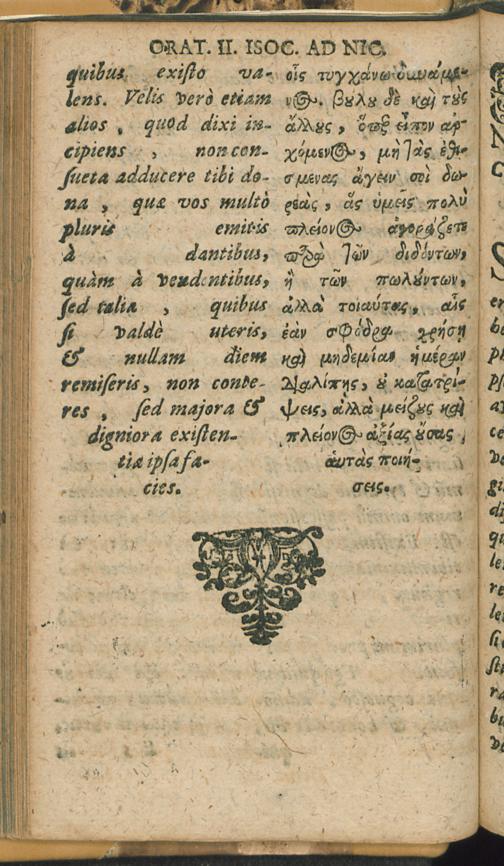 ORAT. II. ISOC. AD NIC.
quibus exiſto va-
lens. Velis verò etiam
alios, quod dixi in-
cipiens, non con-
ſueta adducere tibi do-
na, quæ vos multò
pluris emitis
à dantibus,
quàm à vendentibus,
ſed talia, quibus
ſi valdè uteris,
& nullam diem
remiſeris, non conte-
res, ſed majora &
digniora exiſten-
tia ipſa fa-
cies.
οἷς τυγχάνω δυνάμε-
νος. βούλου δὲ καὶ τοὺς
ἄλλους, ὅπερ εἶπον ἀρ-
χόμενος, μὴ τὰς εἰθι-
σμένας ἄγειν σοι δω-
ρεὰς, ἃς ὑμεῖς πολὺ
πλείονος ἀγοράζετε
παρὰ τῶν διδόντων,
ἢ τῶν πωλούντων,
ἀλλὰ τοιαύτας, αἷς
ἐὰν σφόδρα χρήσῃ
καὶ μηδεμίαν ἡμέραν
διαλίπῃς, οὐ κατατρί-
ψεις, ἀλλὰ μείζους καὶ
πλείονος ἀξίας οὔσας
αὐτὰς ποιή-
σεις.